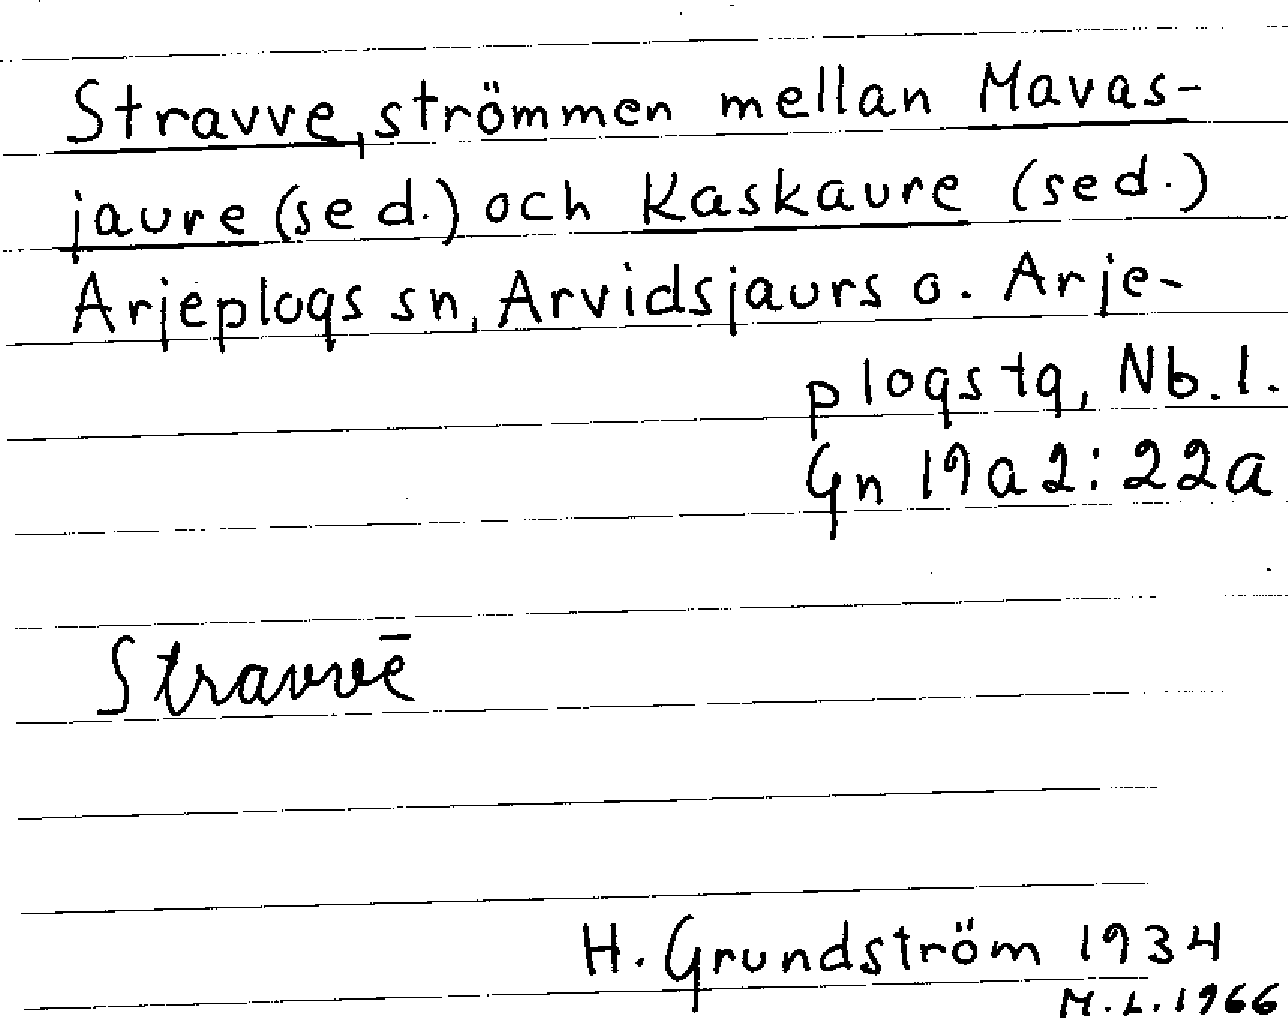 Stravve, strömmen mellan Mavas-
jaure (sed.) och Kaskaure (sed.)
Arjeplogs sn, Arvidsjaurs o. Arje-
plogs tg, Nb. l.
Gn 19a2:22a
Stravvē
H. Grundström 1934
M.L. 1966